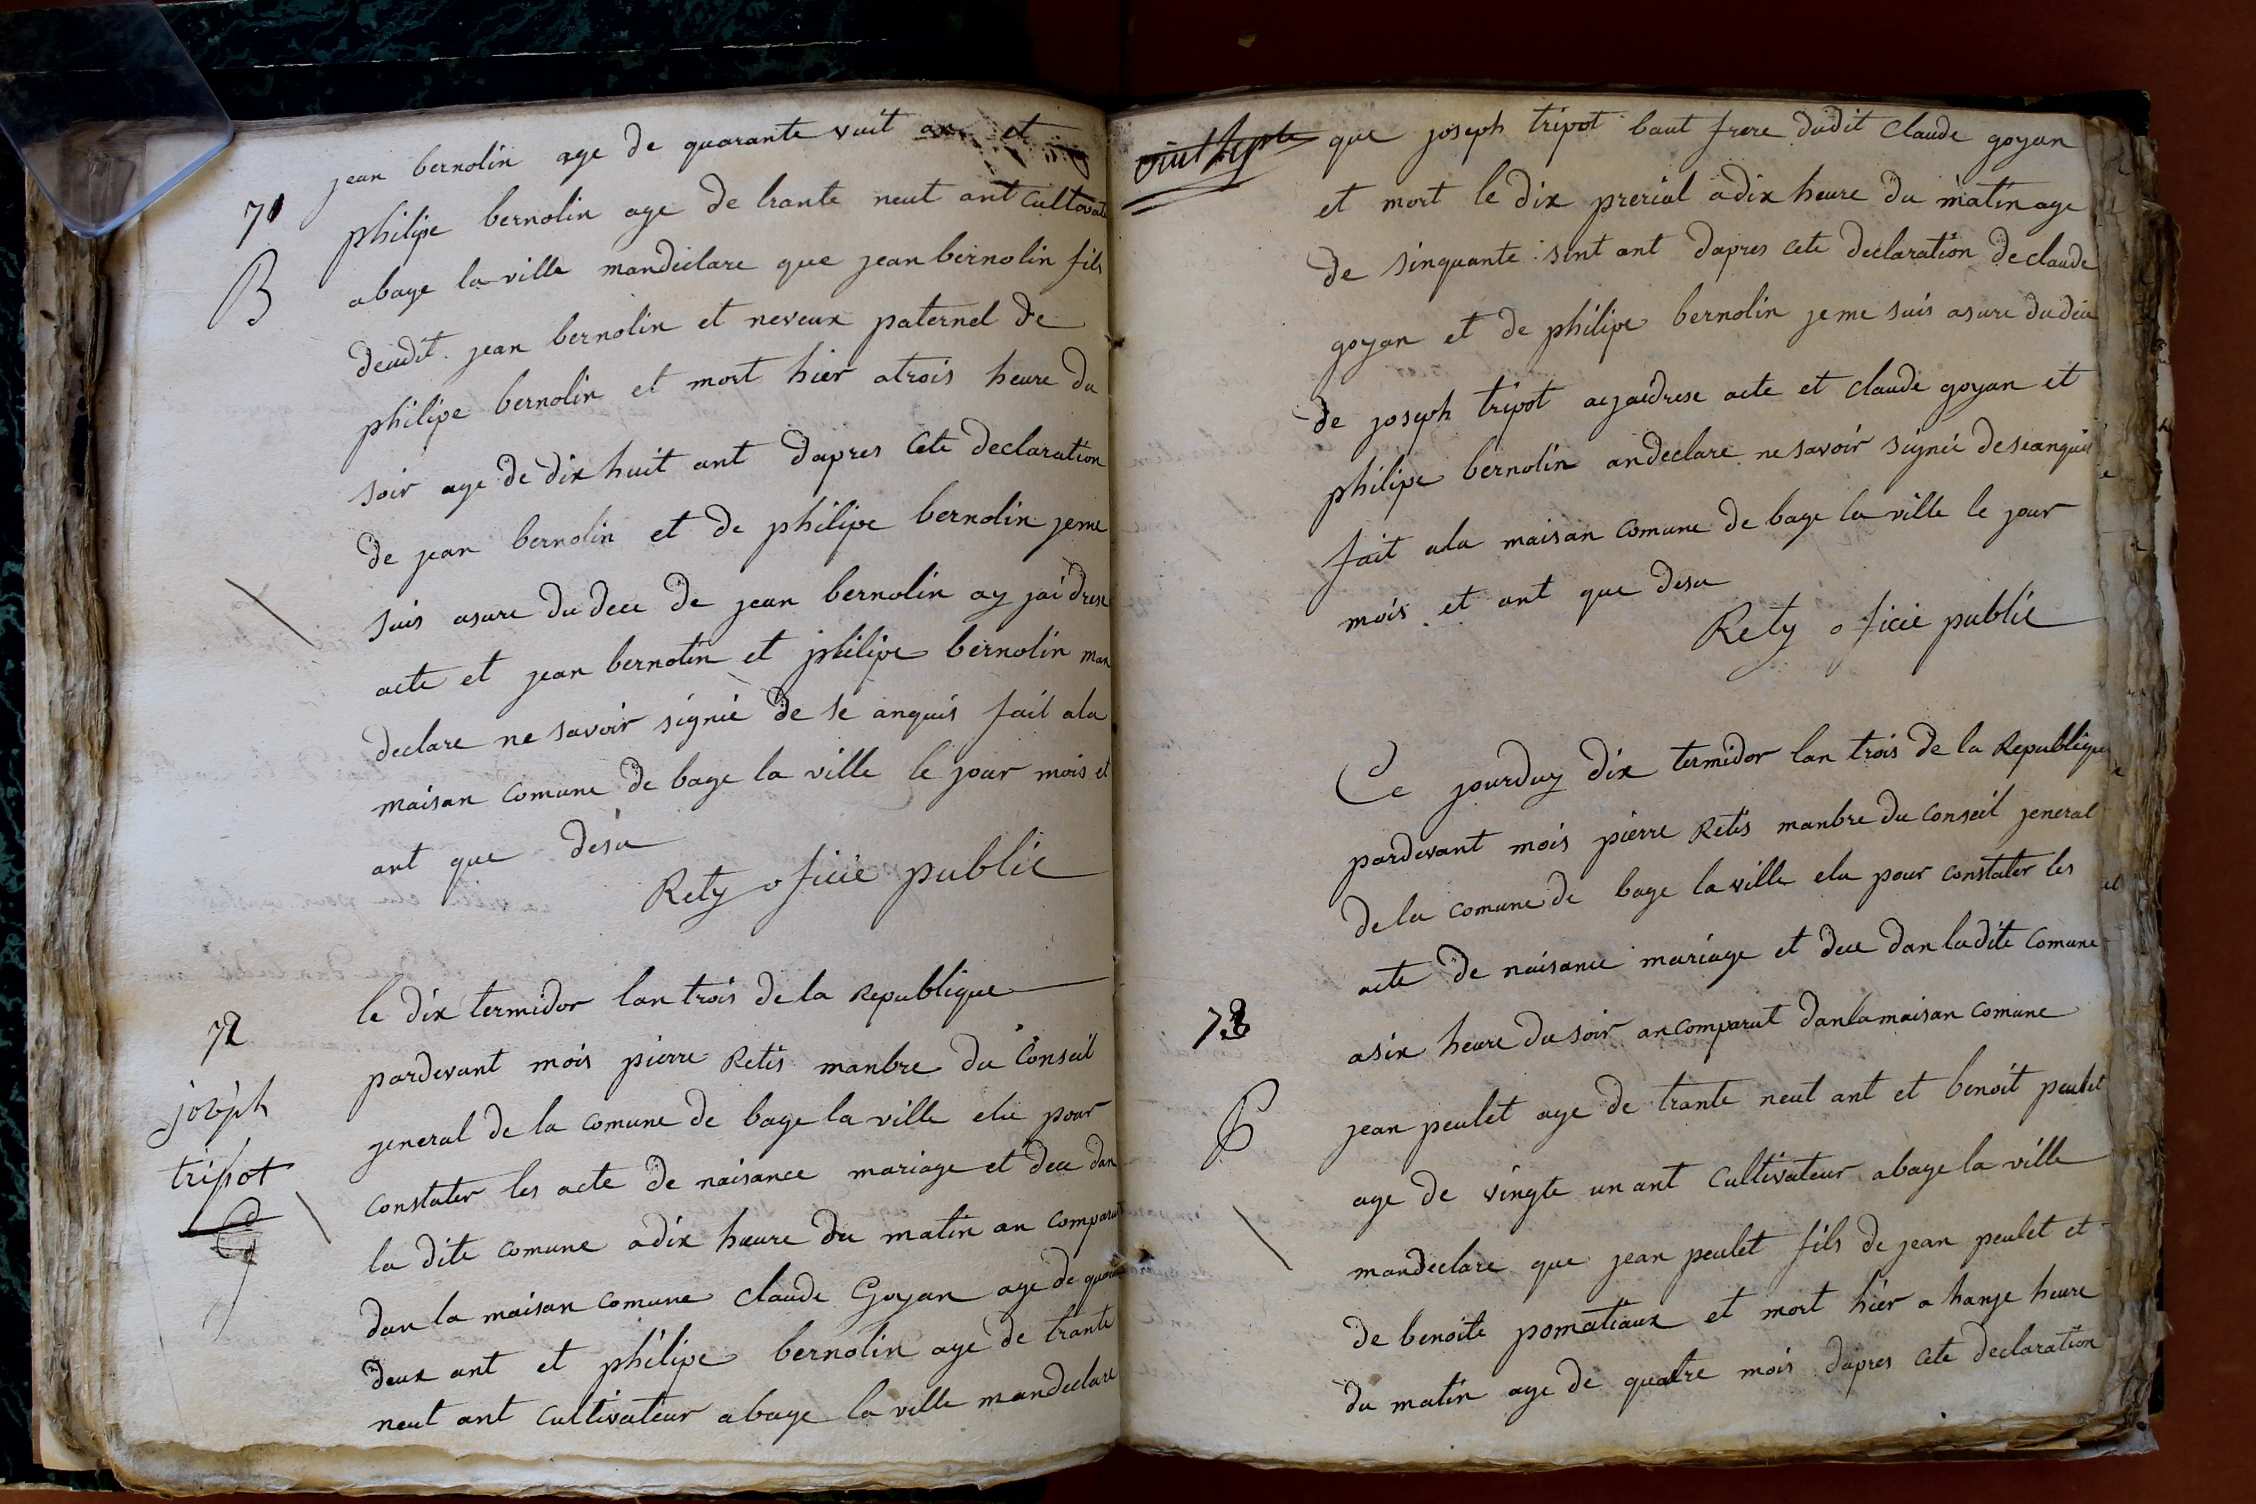 jean bernolin age de quarante vuit an et
71
philipe bernolin age de trante neut ant Cultivat
B
abage la ville mandeclare que jean bernolin fils
deudit jean bernolin et neveux paternel de
philipe bernolin et mort hier atrois heure du
soir age de dix huit ant dapres Cete declaration
de jean bernolin et de philipe bernolin jeme
suis asure du dece de jean bernolin ay jai drese
acte et jean bernolin et philipe bernolin man
declare ne savoir signié de se anquis fait ala
maisan Comune de bage la ville le jour mois et
ant que desu
Rety oficié public
le dix termidor lan trois de la Republique
72
pardevant mois pierre Retis manbre du Conseil
joseph
jeneral de la Comune de bage la ville elu pour
tripot
Constater les acte de naisance mariage et dece dan
la dite Comune adix heure du matin an Comparut
dan la maisan Comune Claude Goyan age de
deux ant et philipe bernolin age de trante
neut ant Cultivateur abage la ville mandeclare
vint septe que joseph tripot baut frere dudit Claude goyan
et mort le dix prerial adix heure du matin age
de sinquante sint ant dapres Cete declaration de claude
goyan et de philipe bernolin jeme suis asure dudece
de joseph tripot ayjaidrese acte et Claude goyan et
philipe bernolin andeclare ne savoir signié deseanquis
fait ala maisan Comune de bage la ville le jour
mois et ant que desu
Rety oficié public
Ce jourduy dix termidor lan trois de la Republique
pardevant mois pierre Retis manbre du Conseil jeneral
de la Comune de bage la ville elu pour Constater les
acte de naisance mariage et dece dan ladite Comune
73
asix heure du soir anComparut danlamaisan Comune
jean peulet age de trante neut ant et benoit peulet
age de vingte un ant Cultivateur abage la ville
mandeclare que jean peulet fils de jean peulet et
de benoite pomatiaux et mort hier a hanze heure
du matin age de quatre mois dapres Cete declaration